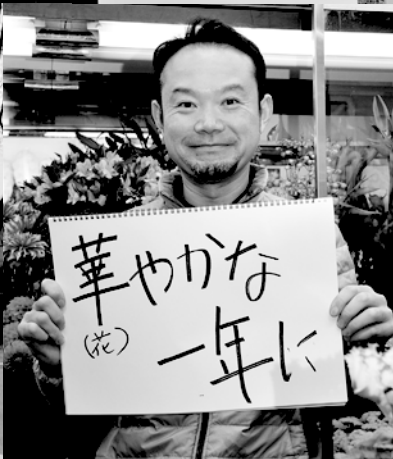 華やかな
（花）
一年に